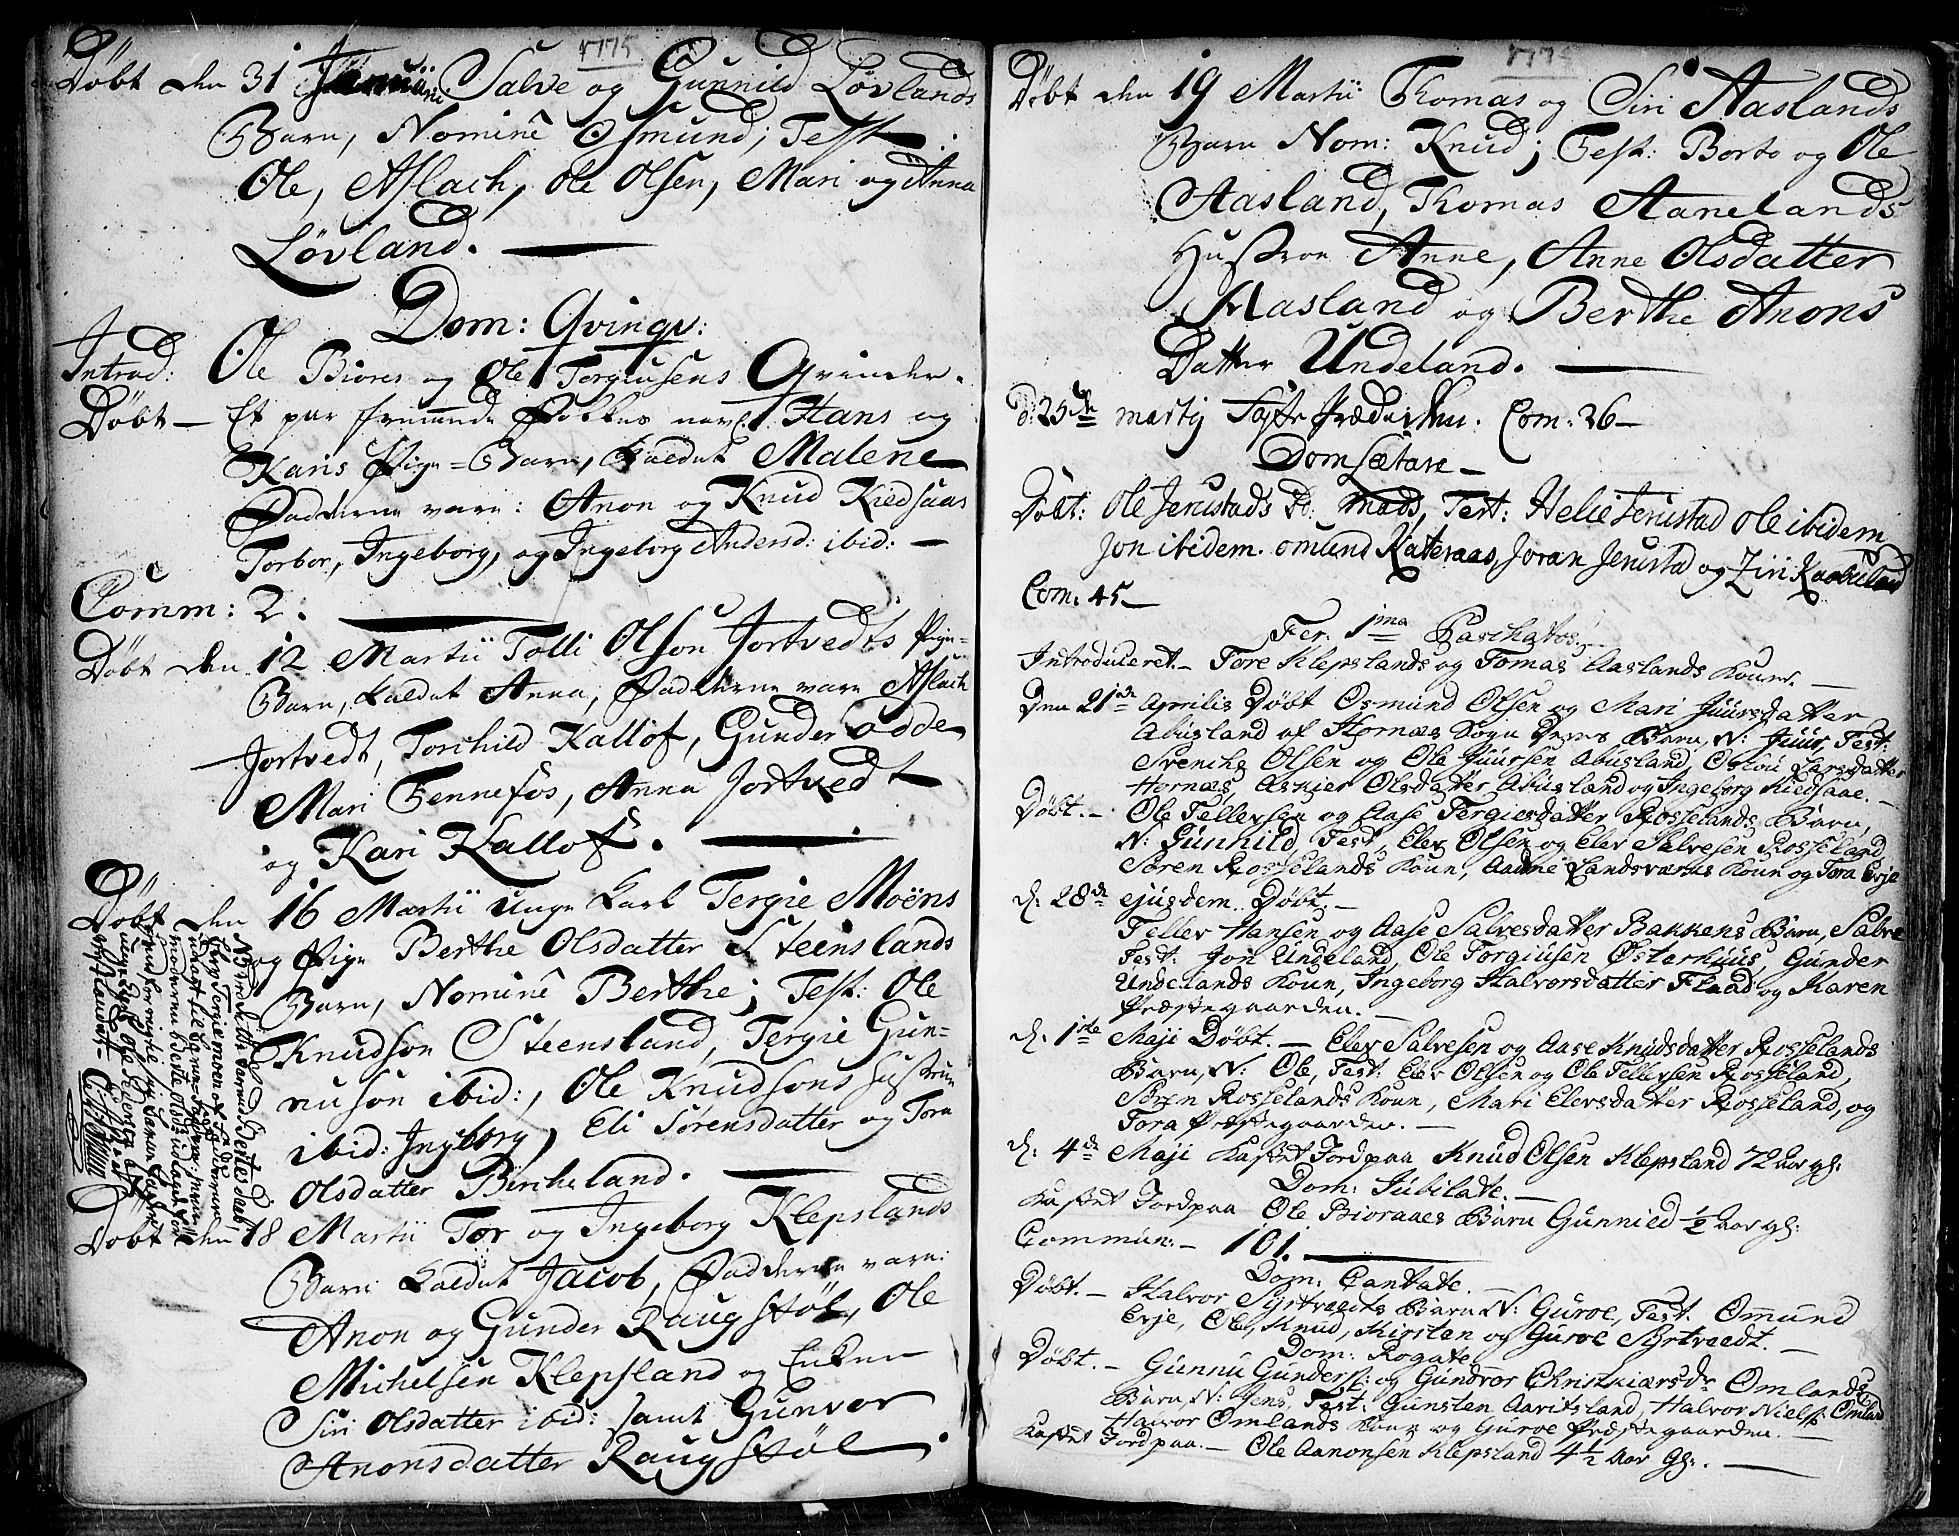 1775
Døbt den 31 Januarii Salve og Gunnild Løvlands
Barn, Nominê Osmund; Test:
Ole, Aslach, Ole Olsen, Mari og Anna
Løvland.
Dom: Qvinqv:
Introd: Ole Biores og Ole Torgiusens Qvinder.
Døbt — Et par fremmede Folkes navl. Hans og
Karis Pige-Barn, kaldet Malene
Fadderne vare: Anon og Knud Kiedsaas
Torbor, Ingeborg, og Ingeborg Andersd: ibid: —
Comm: 2.
Døbt den 12 Martii Tolli Olson Jortvedts Pige-
Barn, kaldet Anna, Fadderne vare Aslach
Jortvedt, Torchild Kallof, Gunder Odde
Mari Fennefos, Anna Jortvedt
og Kari Kallof.
Døbt den 16 Martii unge Karl Tergie Moëns
og Pige Berthe Olsdatter Steenslands
Barn, Nominê Berthe; Test: Ole
Knudson Steensland, Tergie Gun-
nuson ibid:, Ole Knudsons Hustrue
ibid: Ingborg, Eli Sørensdatter og Tora
Olsdatter Bircheland.
Døbt den 18 Martii Tor og Ingeborg Klepslands
Barn kaldet Jacob, Fadderne vare:
Anon og Gunder Raugstøl, Ole
Michelsen Klepsland og Enken
Siri Olsdatter ibid: samt Gunvor
Anonsdatter Raugstøl.
1775
Døbt den 19 Martii Thomas og Siri Aaslands
Barn Nom: Knud; Test: Borto og Ole
Aasland, Thomas Aanelands
Hustroe Anne, Anne Olsdatter
Aasland og Berthe Anons
Datter Undeland.
d: 25de martij Com: 26—
Dom Lætare —
Døbt: Ole Jerustads B: Mads, Test: Helie Jerustad Ole ibidem
Jon ibidem. Omund Kateraas, Joran Jerustad og Ziri Kaabuland
Com: 45—
Fer: 1ma Paschatos.
Introduceret.— Tore Klepslands og Tomas Aaslands Koner. —
Den 21de Aprilis Døbt Osmund Olsen og Mari Juursdatter
Abusland af Hornæs Sogn Deres Barn, N: Juur, Test:
Svenche Olsen og Ole Juursen Abusland, Oslou Larsdatter
Hornæs, Asnier Olsdatter Abusland og Ingeborg Kiedsaae. —
Døbt.— Ole Tellevsen og Aase Tergiesdatter Rosselands Barn,
N: Gunhild, Test: Elev Olsen og Elev Salvesen Rosseland,
Søren Rosselands Koun, Aanne Landsværks Koun og Tora Evje
d: 28de ejusdem Døbt. —
Tellev Hansen og Aase Salvesdatter Bakkens Barn, Salve
Test: Jon Undeland, Ole Torgiusen Østerhuus, Gunder
Undelands Koun, Ingeborg Halvorsdatter Flaad og Karen
Præstegaarden. —
d: 1ste Maji Døbt. — Elev Salvesen og Aase Knudsdatter Rosselands
Barn, N: Ole, Test: Elev Olsen og Ole Tellevsen Rosseland,
Søren Rosselands Koun, Mari Elevsdatter Rosseland, og
Tora Præstegaarden. —
d: 4de Maji Kastet Jordpaa Knud Olsen Klepsland 72 Aar gl:
Dom: Jubilate. —
Kastet Jordpaa Ole Bioraaes Barn Gunnied ½ Aar gl:
Commun:— 101.
Dom: Cantate. —
Døbt. — Halvor Syrtvedts Barn N: Guroe, Test: Omund
Evje, Ole, Knud, Kirsten og Guroe Syrtveedt. —
Dom: Rogate
Døbt. — Gunnu Gunders: og Gundvor Christniærsdr Omlands
Barn, N: Jens, Test: Gunsten Aaritsland, Halvor Niels: Omland
Halvor Omlands Koun og Guroe Præstegaarden. —
Kastet Jordpaa. — Ole Aanonsen Klepsland 4½ Aar gl:. —